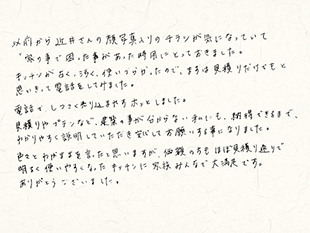 以前から近井さんの顔写真入りのチラシが気になっていて
"家の事で困った事があった時用にとっておきました。
キッチンが古く、汚く、使いづらかったので、まずは見積りだけでもと
思いきって電話をしてみました。
電話で、しつこく売り込まれずホッとしました。
見積りやプランなど、建築の事が分からない私にも、納得できるまで、
わかりやすく説明していただき安心してお願いする事になりました。
色々とわがままを言ったと思いますが、価額の方もほぼ見積り通りで
明るく使いやすくなったキッチンに家族みんなで大満足です。
ありがとうございました。